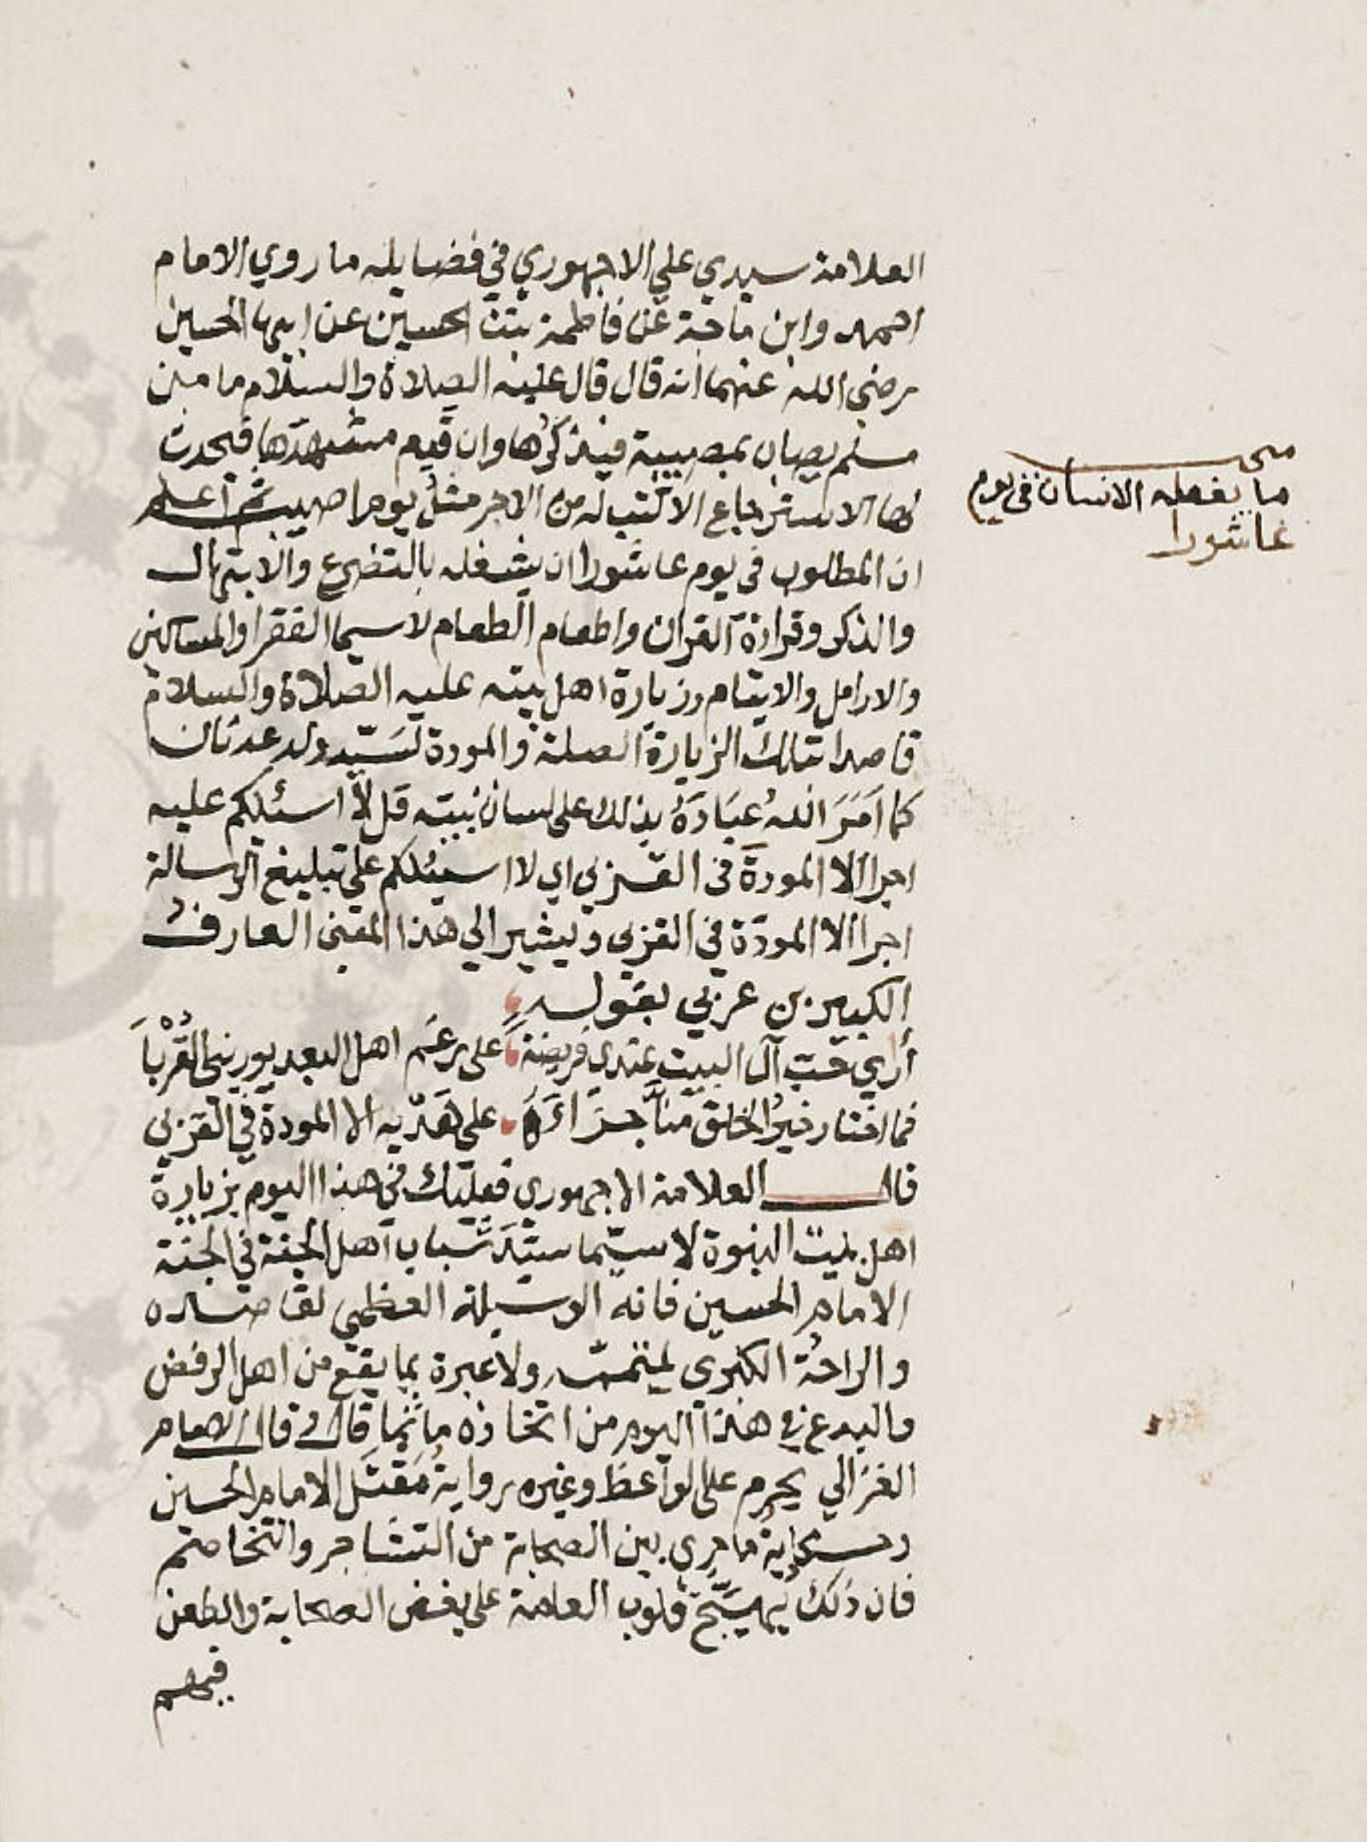 العلامة سيدي علي الاجهوري في فضايله ما روي الامام
احمد وابن ماجة عن فاطمة بنت الحسين عن ابيها الحسين
رضي الله عنهما انه قال قال عليه الصلاة والسلام ما من
مسلم يصاب بمصيبة فيذكرها وان قدم عهدها فيحدث
لها الاسترجاع الا كتب له من الاجر مثل يوم اصيب ثم اعلم
ان المطلوب في يوم عاشورا ان يشغله بالتضرع والابتهال
والذكر وقراءة القران واطعام الطعام لاسيما الفقرا والمساكين
والارامل والايتام وزيارة اهل بيته عليه الصلاة والسلام
قاصدا بتلك الزيارة الصلة والمودة لسيد ولد عدنان
كما امر الله عباده بذلك على لسان نبيه قل لا اسئلكم عليه
اجرا الا المودة في القربي اي لا اسئلكم علي تبليغ الرسالة
اجرا الا المودة في القربي ويشير الي هذا المعني العارف
الكبير بن عربي بقوله
أراي حب آل البيت عندي فريضة على رغم اهل البعد يورثني القربا
فما اختار خير الخلق منا جزاءه على هديه الا المودة في القربي
قال العلامة الاجهوري فعليك في هذا اليوم بزيارة
اهل بيت النبوة لا سيما سيد شباب اهل الجنة في الجنة
الامام الحسين فانه الوسيلة العظمي لقاصده
والراحة الكبرى ولا عبرة بما يقع من اهل الرفض
والبدع في هذا اليوم من اتخاذه ماتما قال وقال الامام
الغزالي يحرم على الواعظ وغيره رواية مقتل الامام الحسين
وحكاية ما جري بين الصحابة من التشاجر والتخاصم
فان ذلك يهيج قلوب العامة على بغض الصحابة والطعن
فيهم
ما يفعله الانسان في يوم
عاشورا